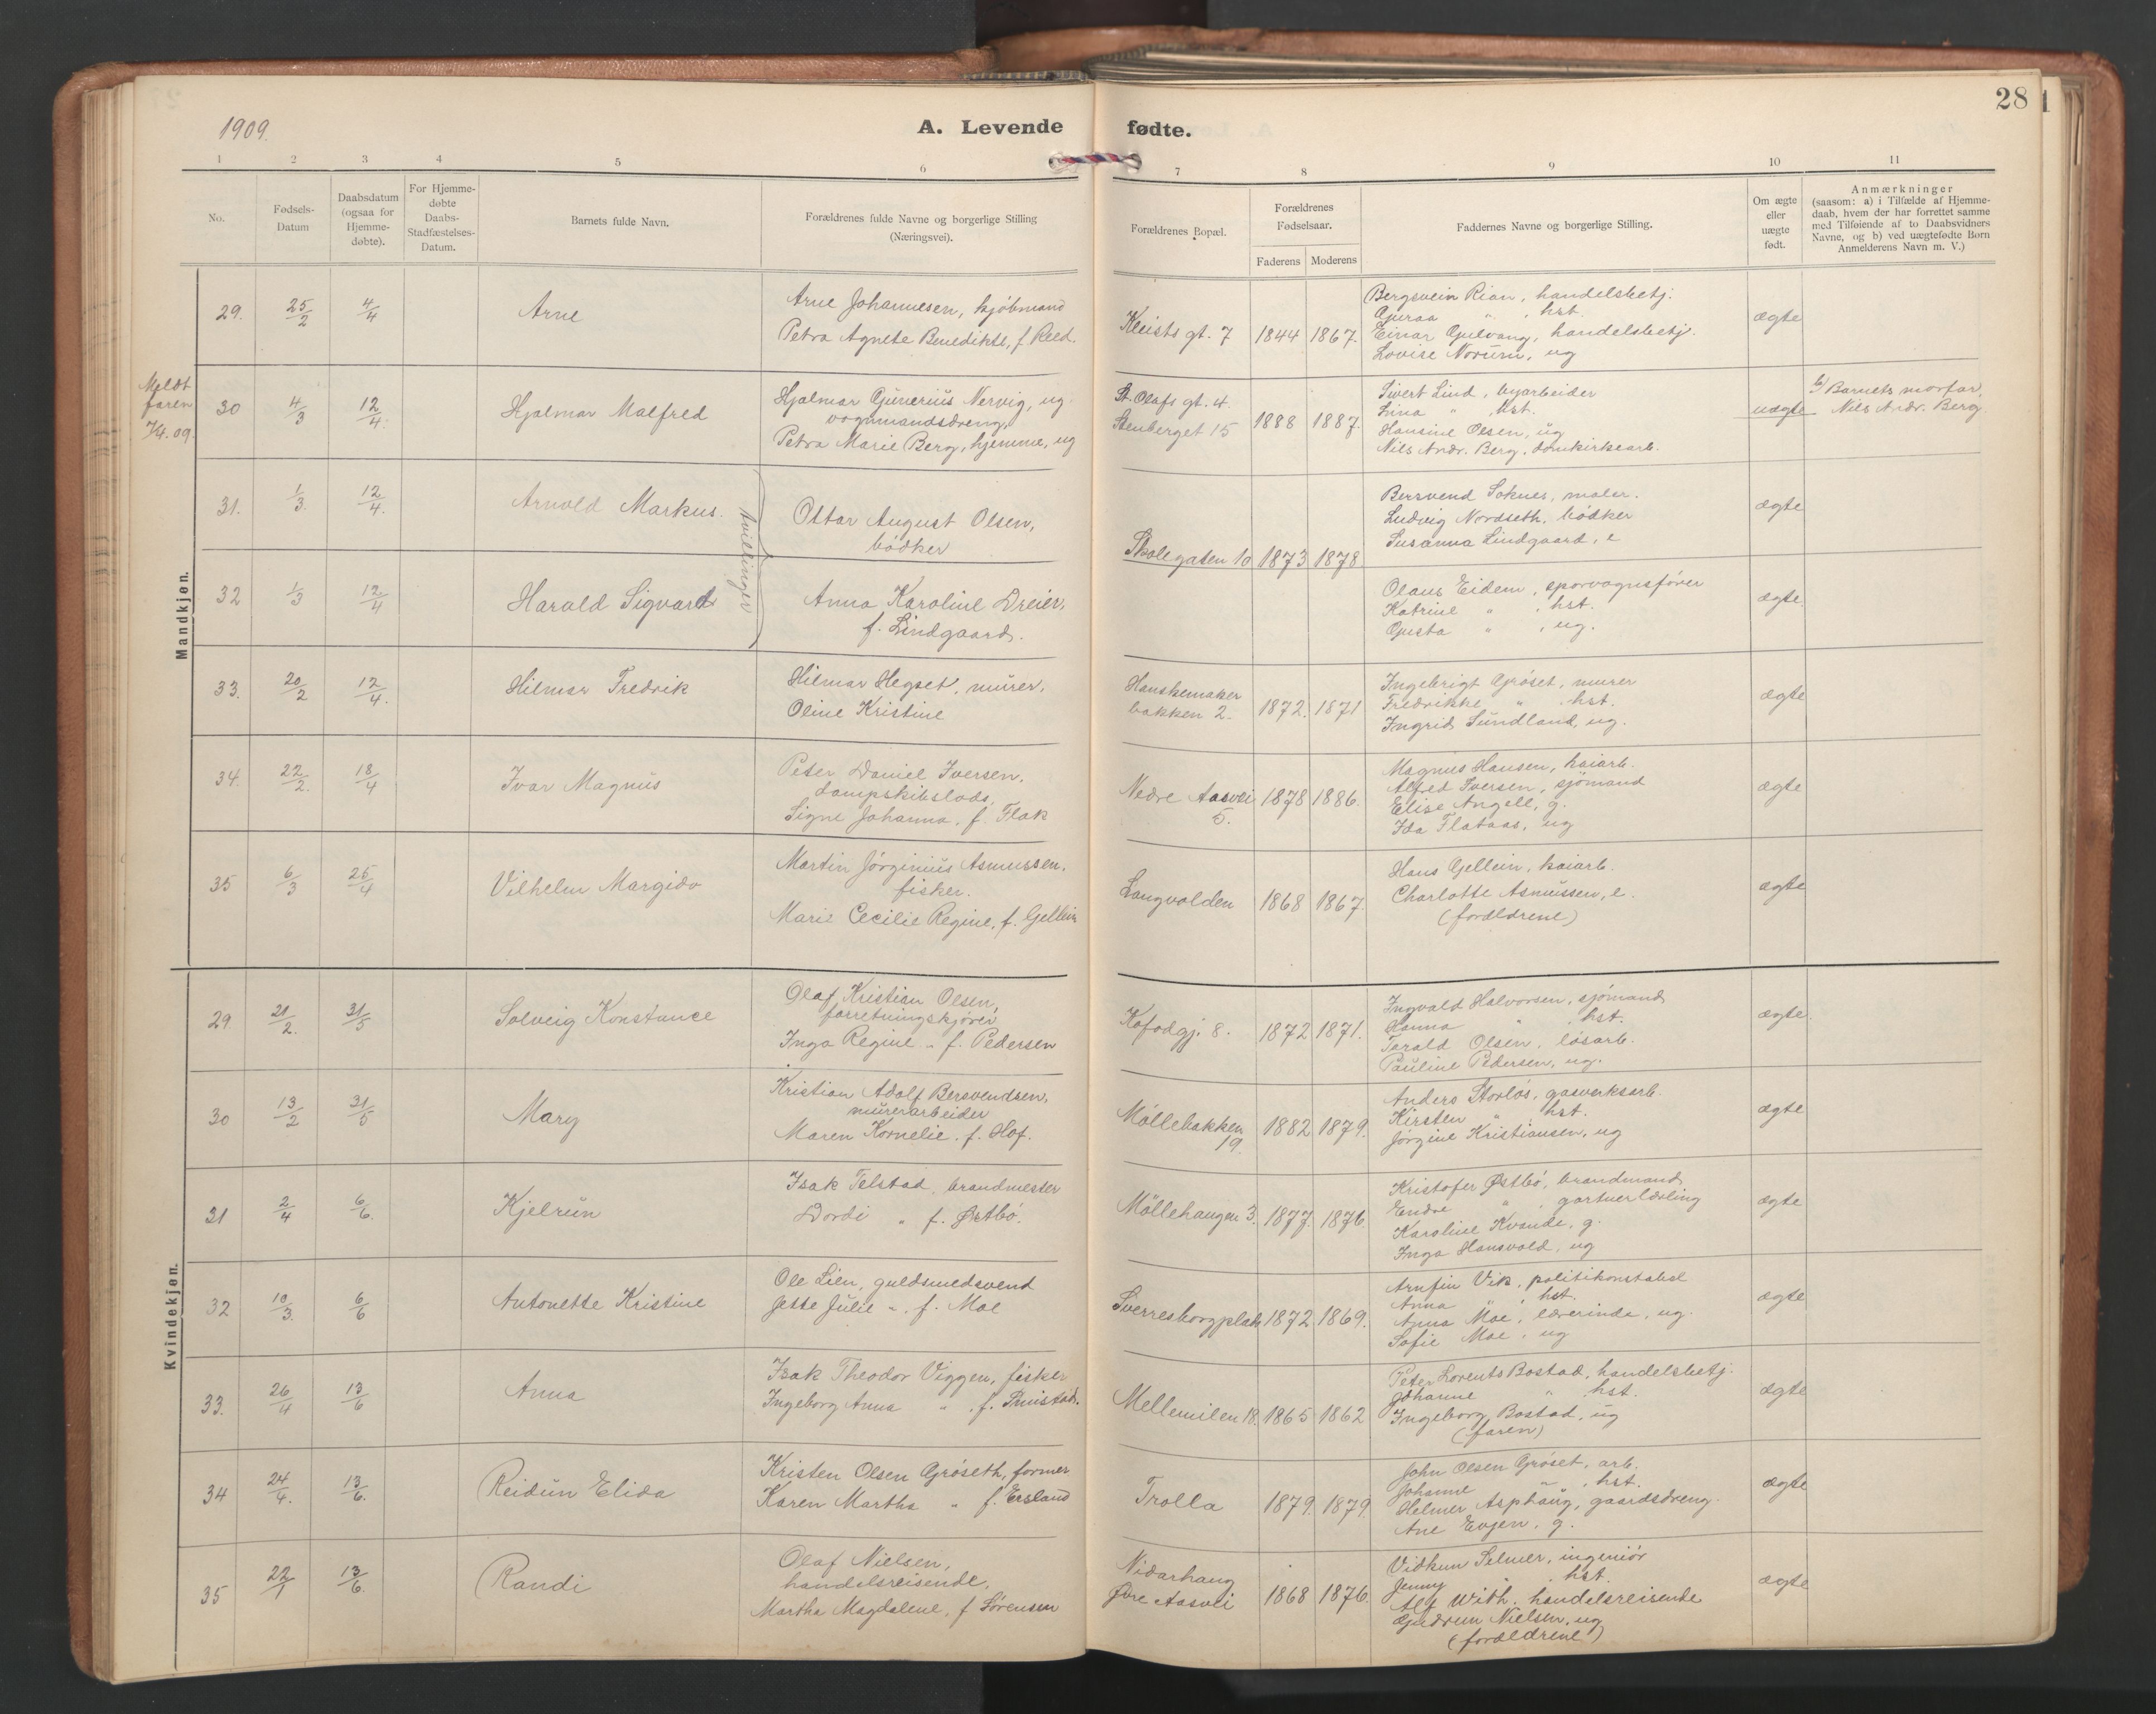 28
1
1909.
A. Levende fødte.
1 2 3 4 5 6 7 8 9 10 11
No.
Fødsels-
Datum
Daabsdatum
(ogsaa for
Hjemme-
døbte).
For Hjemme-
døbte
Daabs-
Stadfæstelses-
Datum.
Barnets fulde Navn.
Forældrenes fulde Navne og borgerlige Stilling
(Næringsvei).
Forældrenes Bopæl.
Forældrenes
Fødselsaar.
Faderens Moderens
Faddernes Navne og borgerlige Stilling.
Om ægte
eller
uægte
født.
Anmærkninger
(saasom: a) i Tilfælde af Hjemme-
daab, hvem der har forrettet samme
med Tilføiende af to Daabsvidners
Navne, og b) ved uægtefødte Børn
Anmelderens Navn m. V.)
Mandkjøn.
29. 25/2 4/4 Arne
Arne Johannesen, kjøbmand
Petra Agnete Benedikte, f. Reed.
Kleists gt. 7 1844 1867.
Bergsvein Rian, handelsbetj.
Guraa " , hst.
Einar Gulvang, handelsbetj.
Lovise Norum, ug
ægte
Meldt
faren
7/4.09.
30 4/3 12/4. Hjalmar Malfred
Hjalmar Gunerius Nervig, ug.
vognmandsdreng,
Petra Marie Berg, hjemme, ug
St. Olafs gt. 4.
Stenberget 15
1888 1887.
Sivert Lind, byarbeider
Lina " , hst.
Hansine Olsen, ug
Nils Andr. Berg, domkirkearb.
uægte
b/ Barnets morfar,
Nils Andr. Berg
31. 1/3. 12/4. Arnold Markus.
Tvillinger
Ottar August Olsen,
bødker
Skolegaten 10 1873 1878
Bersvend Soknes, maler.
Ludvig Nordseth, bødker
Susanna Lindgaard, e
ægte
32 1/3 12/4 Harald Sigvard
Anna Karoline Dreier,
f. Lindgaard.
Olaus Eidem, sporvognsfører
Katrine " , hst.
Gusta " , ug.
ægte.
33. 20/2 12/4. Hilmar Fredrik
Hilmar Hegset, murer,
Oline Kristine
Hanskemaker
bakken 2.
1872. 1871
Ingebrigt Grøset, murer
Fredrikke " , hst.
Ingrid Sundland, ug.
ægte
34. 22/2. 18/4 Ivar Magnus
Peter Daniel Iversen,
dampskibslods,
Signe Johanna, f. Flak
Nedre Aasvei
5.
1878 1886.
Magnus Hansen, kaiarb.
Alfred Iversen, sjømand
Elise Angell, g.
Ida Flataas, ug
ægte
35 6/3 25/4 Vilhelm Margido
Martin Jørginius Asmussen,
fisker.
Marie Cecilie Regine, f. Gellein
Langvolden 1868 1867.
Hans Gellein, kaiarb.
Charlotte Asmussen, e.
(forældrene)
ægte
Kvindekjøn.
29 21/2. 31/5 Solveig Konstance
Olaf Kristian Olsen,
forretningskjører
Inga Regine " f. Pedersen
Kofodgj. 8. 1872 1871.
Ingvald Halvorsen, sjømand
Hanna " , hst.
Tarald Olsen, løsarb.
Pauline Pedersen, ug.
ægte.
30 13/2 31/5 Mary
Kristian Adolf Bersvendsen,
murerarbeider
Maren Kornelie, f. Hof.
Møllebakken
19.
1882 1879.
Anders Storløs, gasverksarb.
Kirsten " hst.
Jørgine Kristiansen, ug
ægte
31 2/4 6/6. Kjelrun
Isak Telstad, brandmester
Dordi " f. Østbø.
Møllehaugen 3. 1877. 1876.
Kristofer Østbø, brandmand,
Endre " , gartnerlærling
Karoline Kvande, g.
Inga Hansvold, ug
ægte
32 10/3. 6/6 Antonette Kristine
Ole Lien, guldsmedsvend
Jette Julie ", f. Moe
Sverresborgplads 1872 1869.
Arnfin Vik, politikonstabel
Anna " , hst.
Anna Moe, lærerinde, ug.
Sofie Moe, ug
ægte
33. 26/4 13/6 Anna
Isak Theodor Viggen, fisker
Ingeborg Anna " , f. Smistad.
Mellemilen 18. 1865 1862
Peter Lorents Bostad, handelsbetj.
Johanne " , hst.
Ingeborg Bostad, ug
(faren)
ægte
34 24/4. 13/6. Reidun Elida
Kristen Olsen Grøseth, former
Karen Martha " f. Ersland
Trolla 1879. 1879.
John Olsen Grøset, arb.
Johanne " , hst.
Helmer Asphaug, gaardsdreng.
Ane Evjen, g.
ægte
35 22/1 13/6. Randi
Olaf Nielsen,
handelsreisende,
Martha Magdalene, f Sørensen
Nidarhaug
Øvre Aasvei
1868 1876.
Vidkun Selmer, ingeniør
Jenny " , hst.
Alf With, handelsreisende
Gudrun Nielsen, ug
(forældrene)
ægte